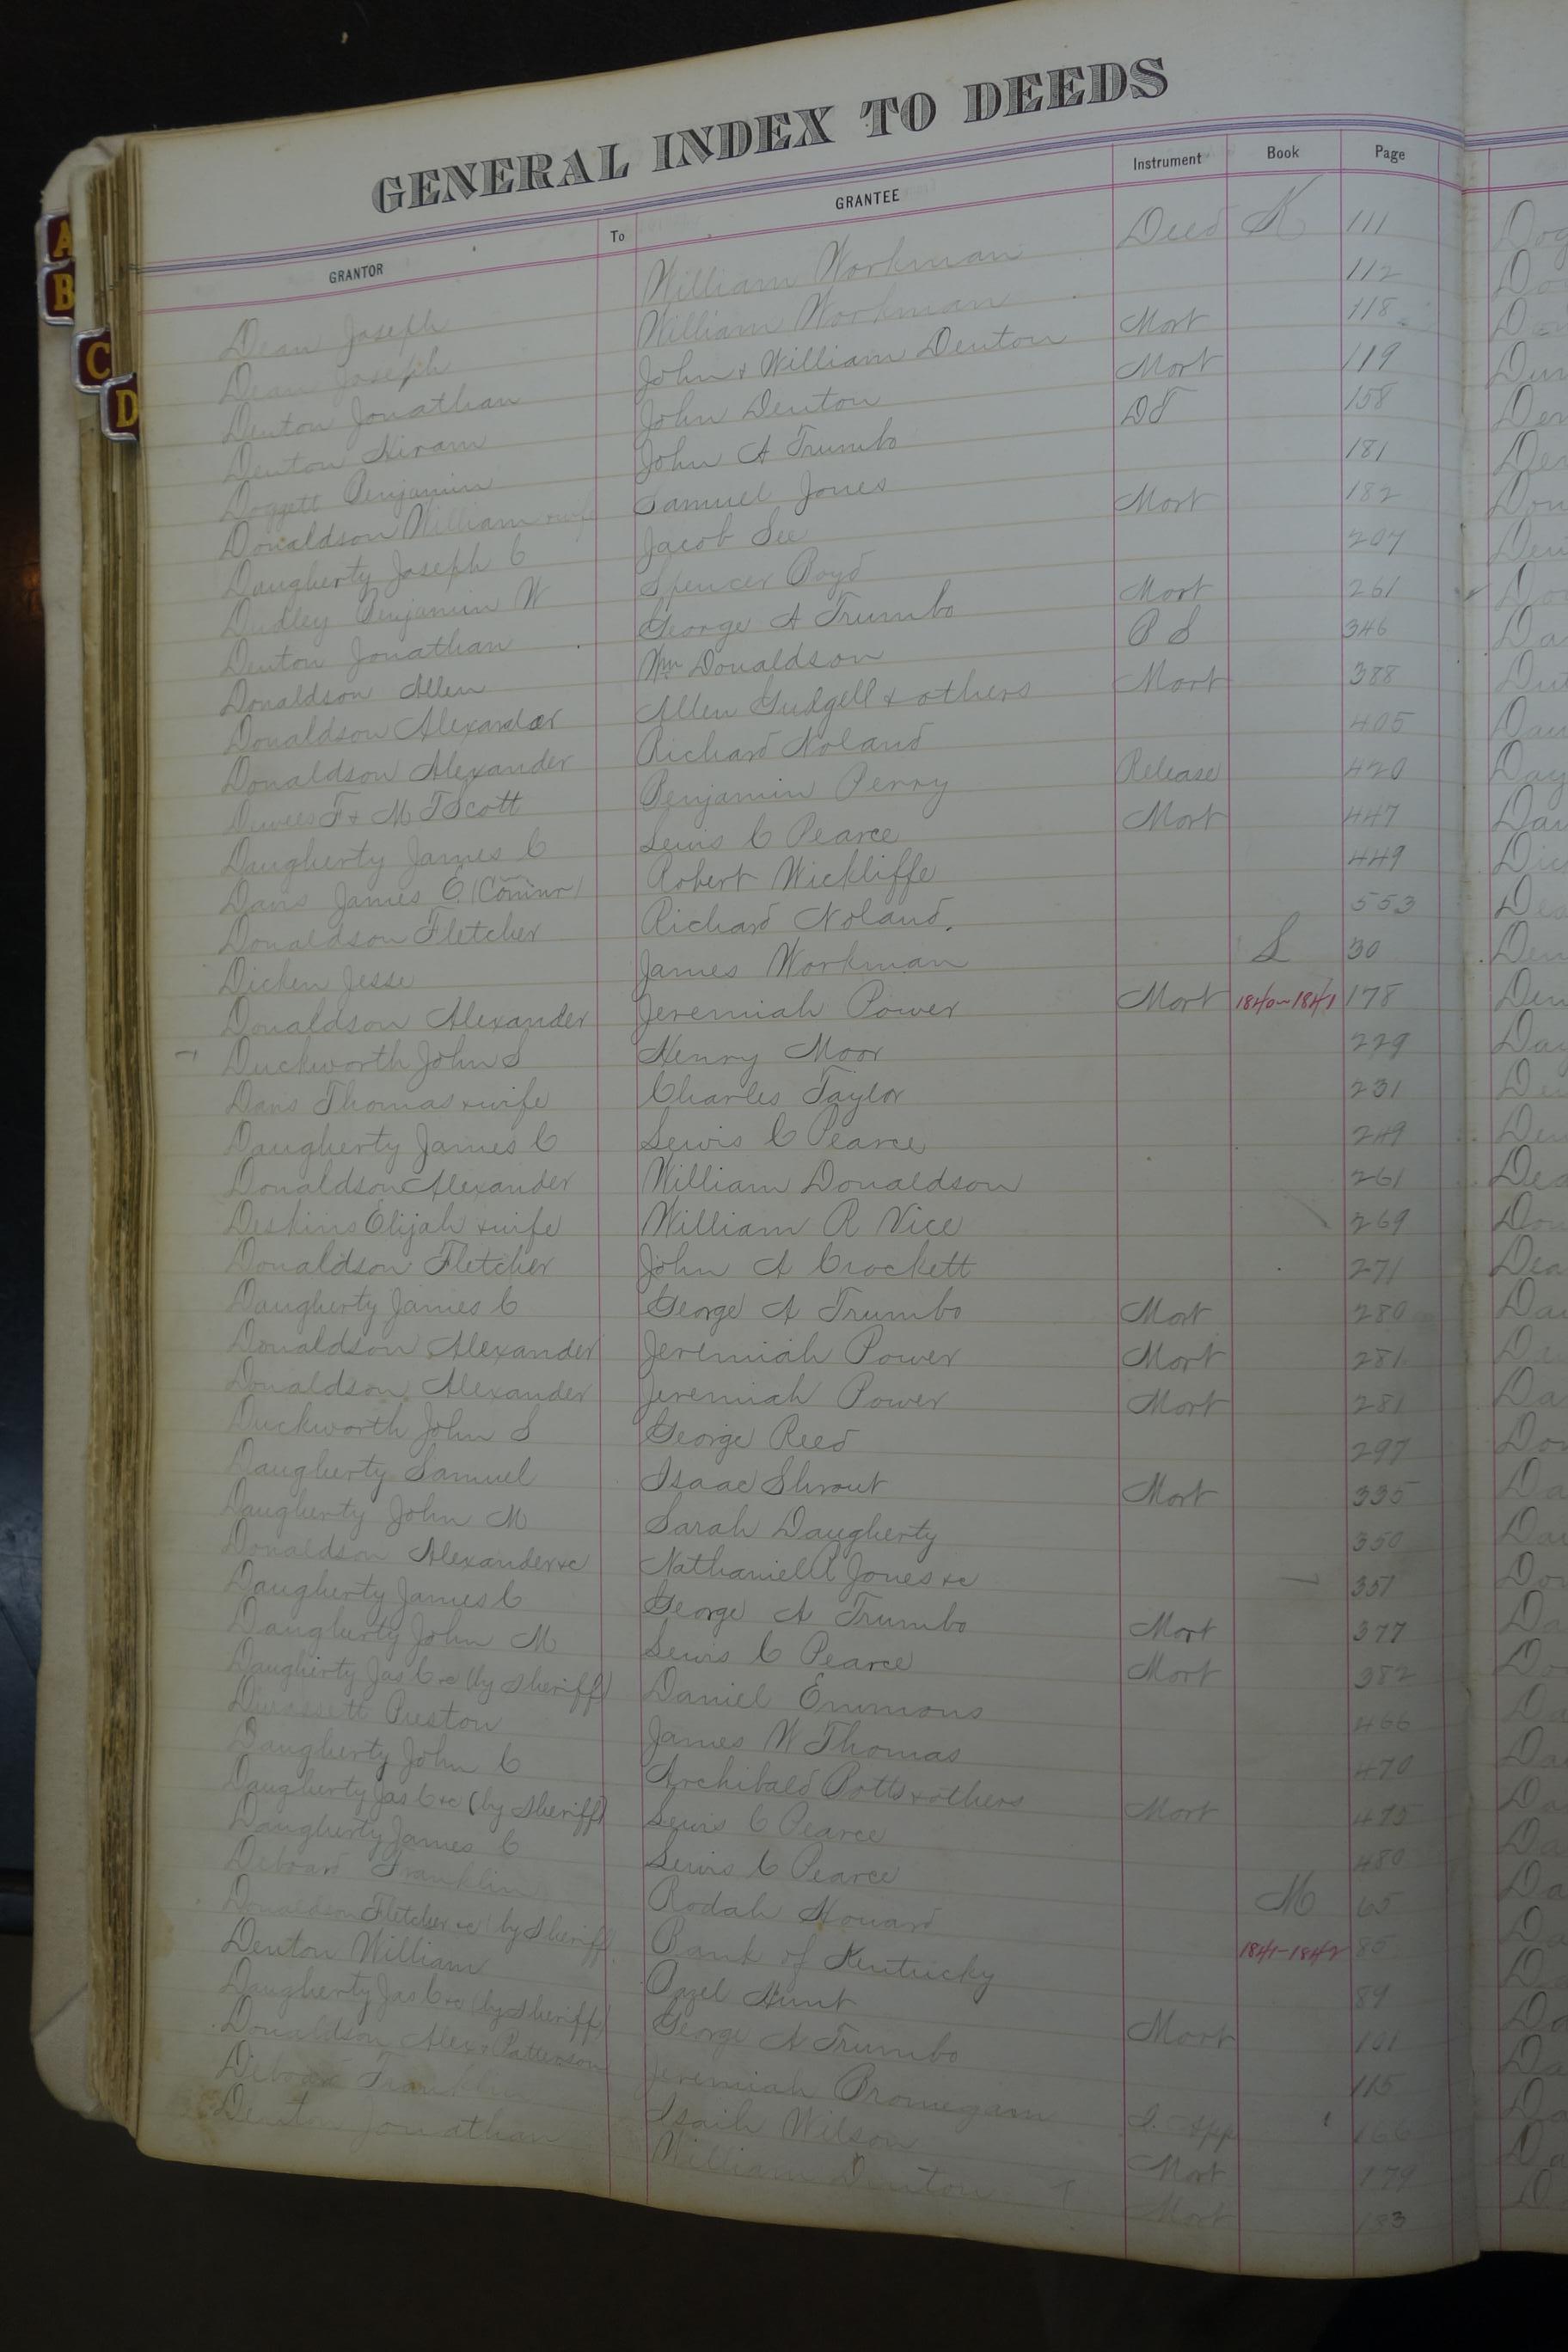 GENERAL INDEX TO DEEDS
GRANTOR To GRANTEE Instrument Book Page
Dean Joseph William Workman Deed K 111
Dean Joseph William Workman 112
Denton Jonathan John & William Denton Mort 118
Denton Hiram John Denton Mort 119
Doggett Benjamin John A Trumbo DT 158
Donaldson William & wife Samuel Jones 181
Daugherty Joseph C Jacob See Mort 182
Dudley Benjamin W Spencer Boyd 207
Denton Jonathan George A Trumbo Mort 261
Donaldson Allen Wm Donaldson B S 346
Donaldson Alexander Allen Gudgell & others Mort 388
Donaldson Alexander Richard Noland 405
Dewees F & M T Scott Benjamin Perry Release 420
Daugherty James C Lewis C Pearce Mort 447
Davis James E (Commr) Robert Wickliffe 449
Donaldson Fletcher Richard Noland. 553
Dicken Jesse James Workman L 30
Donaldson Alexander Jeremiah Power Mort 1840-1841 178
Duckworth John S Henry Moor 229
Davis Thomas & wife Charles Taylor 231
Daugherty James C Lewis C Pearce 249
Donaldson Alexander William Donaldson 261
Deskins Elijah & wife William R Vice 269
Donaldson Fletcher John A Crockett 271
Daugherty James C George A Trumbo Mort 280
Donaldson Alexander Jeremiah Power Mort 281
Donaldson Alexander Jeremiah Power Mort 281
Duckworth John S George Reed 297
Daugherty Samuel Isaac Shrout Mort 335
Daugherty John M Sarah Daugherty 350
Donaldson Alexander &c Nathaniel Jones &c 351
Daugherty James C George A Trumbo Mort 377
Daugherty John M Lewis C Pearce Mort 382
Daugherty Jas C &c (by Sheriff) Daniel Emmons 466
Preston James W Thomas 470
Daugherty John C Archibald Botts & others Mort 475
Daugherty Jas C &c (by Sheriff) Lewis C Pearce 480
Daugherty James C Lewis C Pearce M 65
Deboard Franklin Rodah Howard 1841-1842 85
Donaldson Fletcher &c (by Sheriff) Bank of Kentucky 89
Denton William Ozel Hunt Mort 101
Daugherty Jas C &c (by Sheriff) George A Trumbo 115
Donaldson Alex & Patterson Jeremiah App 166
Deboard Franklin Isaih Wilson Mort 179
Denton Jonathan William Denton Mort 183
A
B
C
D